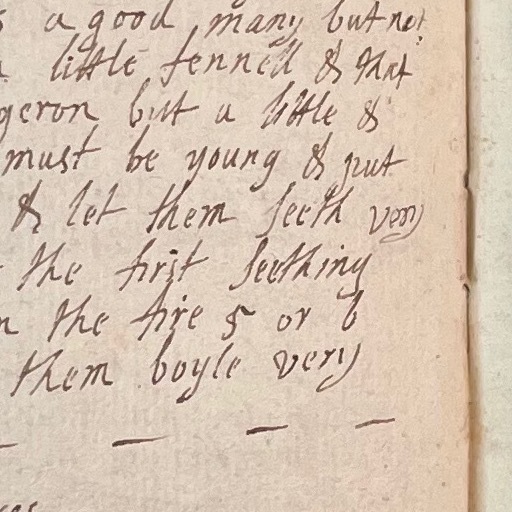 a good many but not
little fennell & that
geron but a little &
must be young & put
& let them seeth very
the first seething
the fire 5 or 6
them boyle very